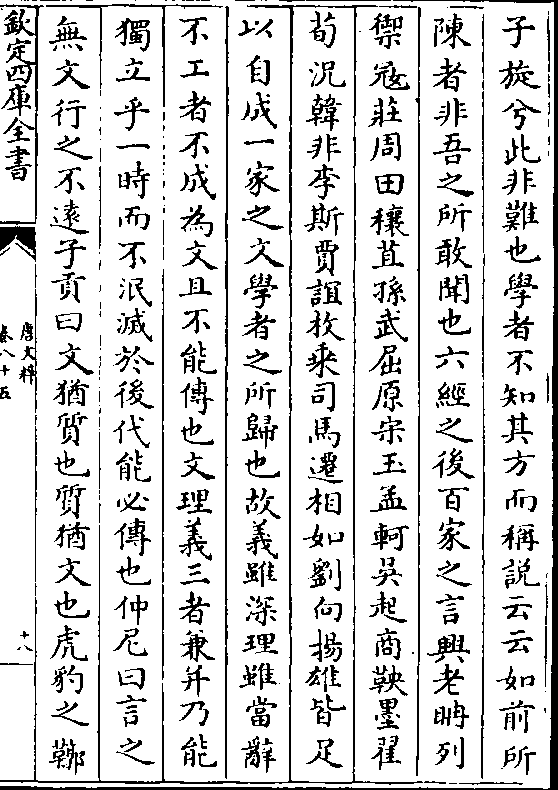 子旋兮此非難也學者不知其方而稱說云云如前所
陳者非吾之所敢聞也六經之後百家之言興老聃列
禦㓂莊周田穰苴孫武屈原宋玉孟軻吳起商鞅墨翟
荀況韓非李斯賈誼枚乘司馬遷相如劉向揚雄皆足
以自成一家之文學者之所歸也故義雖深理雖當辭
不工者不成為文且不能傳也文理義三者兼并乃能
獨立乎一時而不泯滅於後代能必傳也仲尼曰言之
無文行之不遠子貢曰文猶質也質猶文也虎豹之鞹
欽定四庫全書
唐文粹
卷八十五
十八